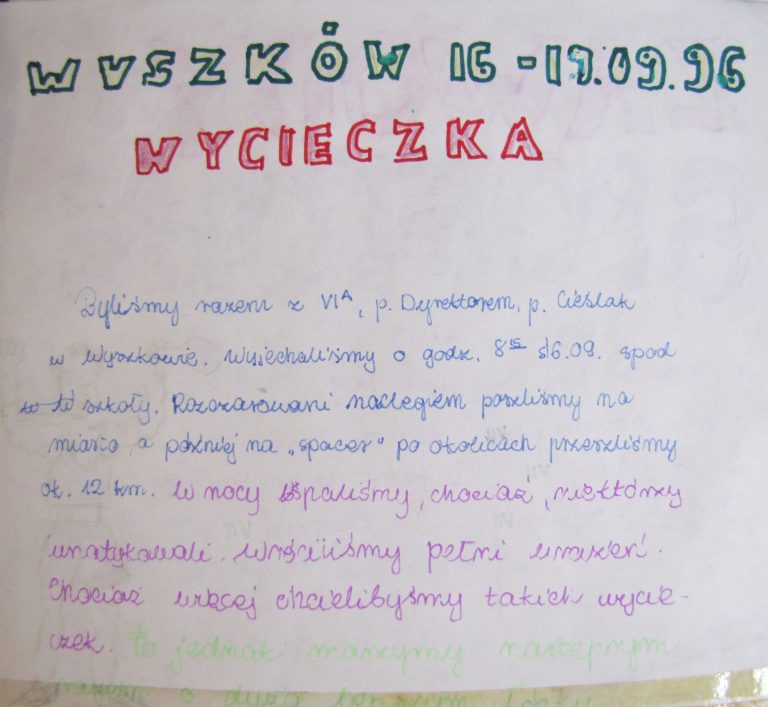 WYSZKÓW 16-17.09.96
WYCIECZKA
Byliśmy razem z VI A, p. Dyrektorem, p. Cieślak
w Wyszkowie. Wyjechaliśmy o godz. 8 16.09. spod
szkoły. Rozczarowani noclegiem poszliśmy na
miasto a później na „spacer" po okolicach przeszliśmy
ok. 12 km. W nocy spaliśmy, chociaż, niektórzy
Wróciliśmy pełni wrażeń.
Chociaż więcej chcielibyśmy takich wycie-
czek. to jednak marzymy następnym
razem o dużo lepszym